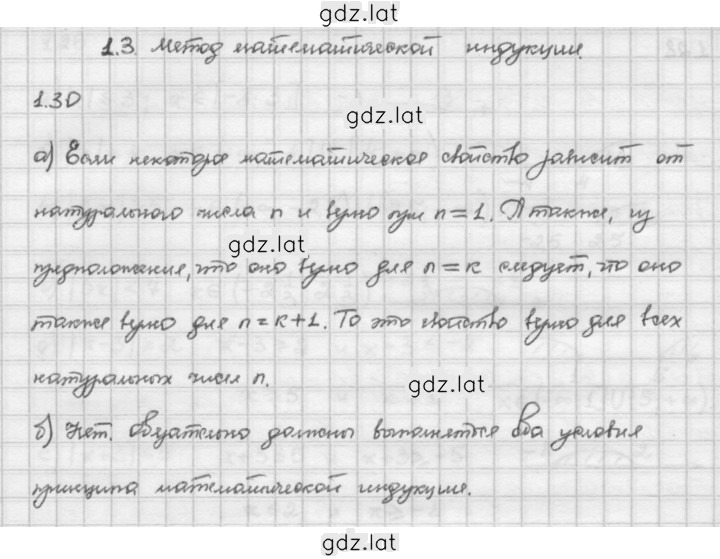 gdz.lat
1.3. Метод математической индукции.
1.30
gdz.lat
а) Если некоторое математическое свойство зависит от
натурального числа n и верно при n=1. А также, из
gdz.lat
предположения, что оно верно для n=k следует, что оно
также верно для n=k+1. То это свойство верно для всех
натуральных чисел n.
gdz.lat
б) Нет. Обязательно должны выполняться оба условия
принципа математической индукции.
gdz.lat